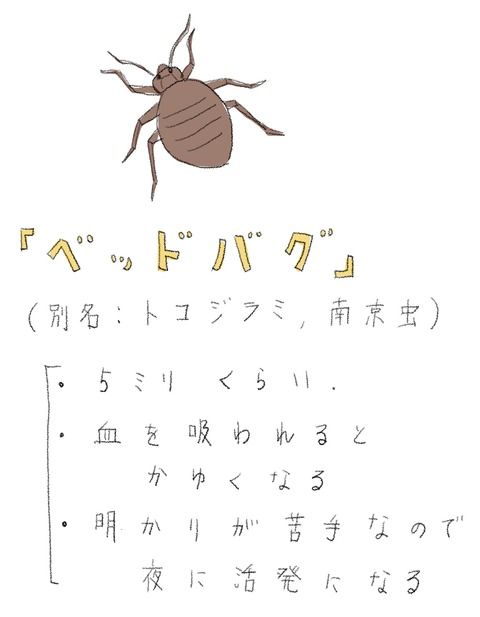 『ベッドバグ』
(別名：トコジラミ, 南京虫)
・5ミリ くらい.
・血を吸われると
かゆくなる
・明かりが苦手なので
夜に活発になる